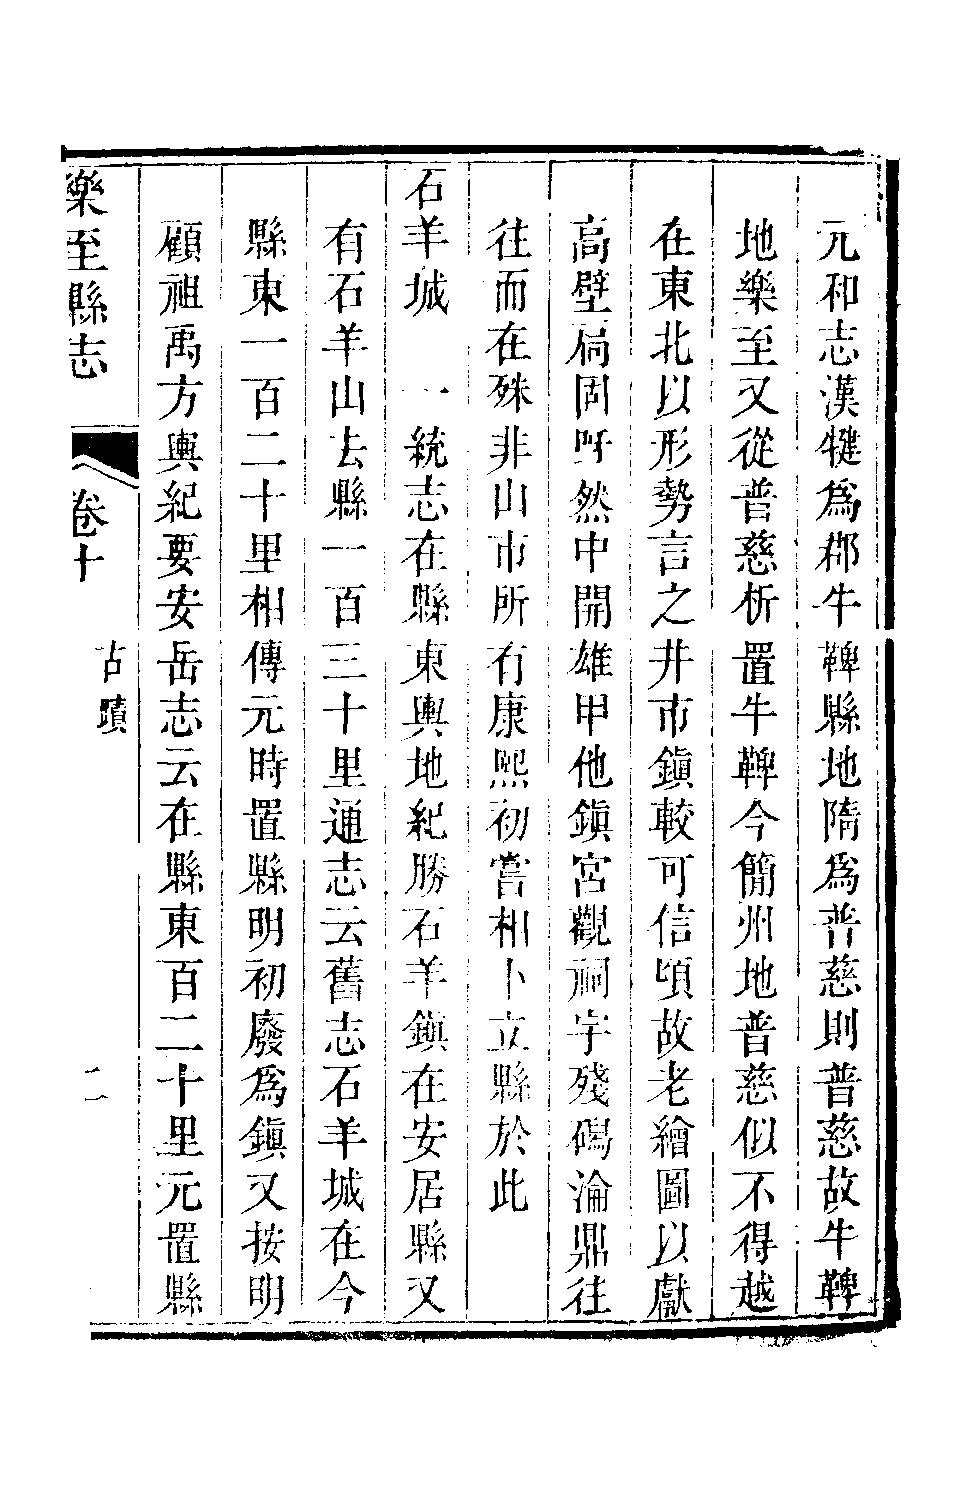 元和志漢犍爲郡牛鞞縣地隋爲普慈則普慈故牛鞞
地樂至又從普慈析置牛鞞今簡州地普慈似不得越
在東北以形勢言之井市鎭較可信頃故老繪圖以獻
高壁扃固呀然中開雄甲他鎭宮觀祠宇殘碣淪鼎往
往而在殊非山市所有康熙初嘗相卜立縣於此
石羊城　一統志在縣東輿地紀勝石羊鎭在安居縣又
有石羊山去縣一百三十里通志云舊志石羊城在今
縣東一百二十里相傳元時置縣明初廢爲鎭又按明
顧祖禹方輿紀要安岳志云在縣東百二十里元置縣
樂至縣志　卷十　古蹟　二